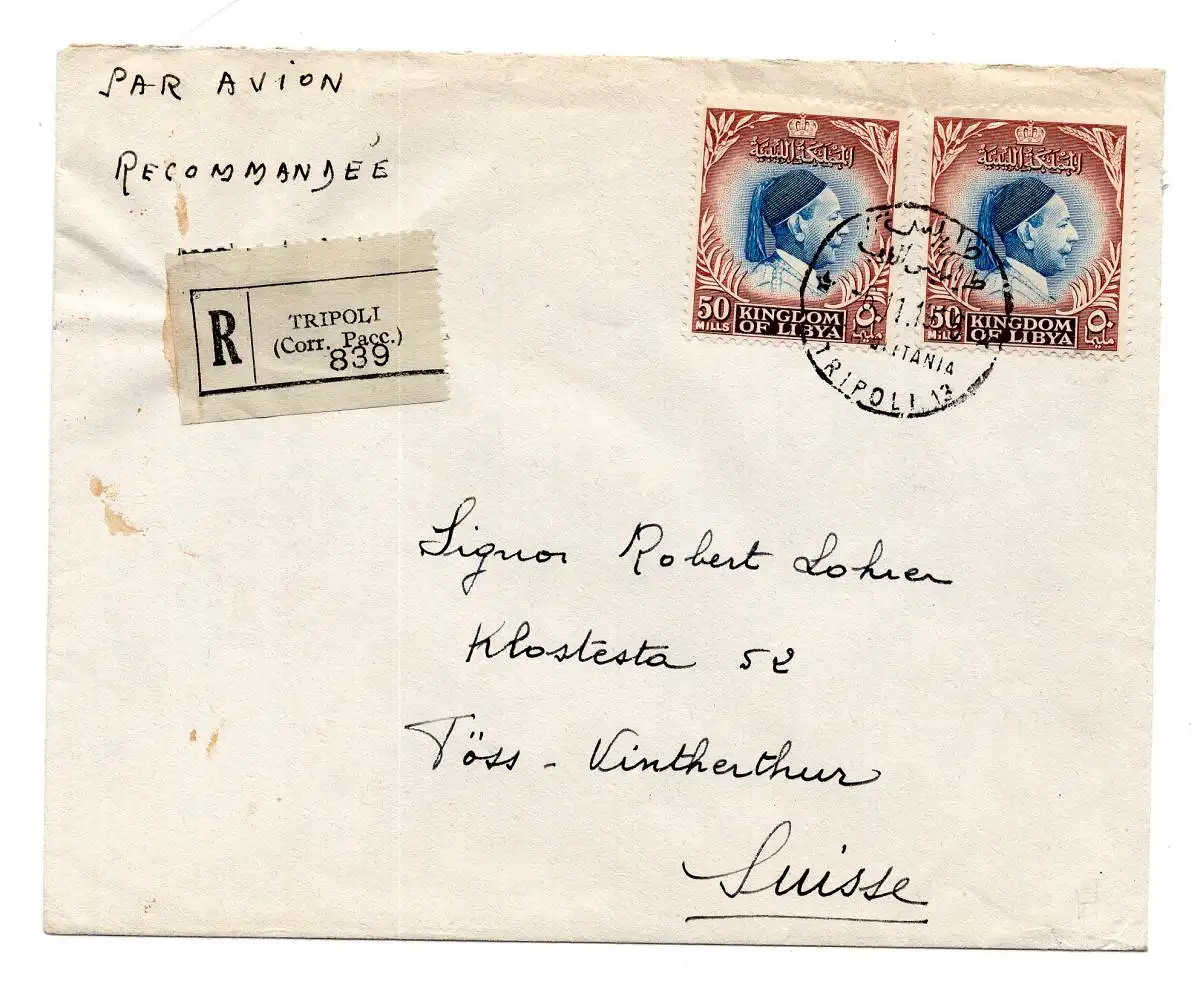 PAR AVION
RECOMMANDÉE
R
TRIPOLI
(Corr. Pacc.)
839
المملكة الليبية
50
MILLS
KINGDOM
OF LIBYA
٥٠
مليما
المملكة الليبية
50
MILLS
KINGDOM
OF LIBYA
٥٠
مليما
طرابلس
TRIPOLI
Signor Robert Lohrer
Klostesta 52
Töss - Vintherthur
Suisse